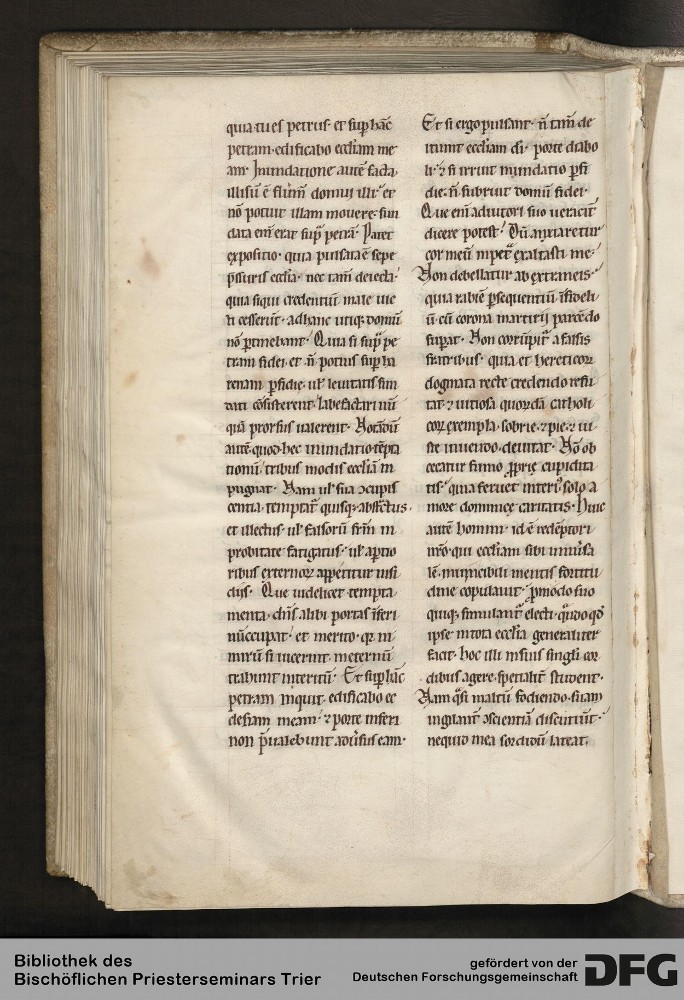 quia tu es petrus· et suꝑ hāc
petram· edificabo eccl̄iam me
am· Inundatione autē facta·
illisū ē flum̄ domui illi· et
nō potuit illam mouere· fun
data em̄ erat sup̄ petrā· Patet
expositio· quia pulsata ē sepe
p̄ssuris eccl̄ia· nec tam̄ deiecta·
quia siqui credentiū male uic
ti cesserūt· ad hanc utiq; domū
nō ꝑtinebant· Quia si sup̄ pe
tram fidei· et n̄ potius suꝑ ha
renam ꝑfidie· ul̄ leuitatis fun
dati cōsisterent· labefactari nū
quā prorsus ualerent· Notādū
autē quod hec inundatio tēpta
tionū· tribus modis eccl̄iā in
pugnat· Nam ul̄ sua ↄcupis
centia· temptat᷑ quisq; abstct̄us·
et illectus· ul̄ falsorū fr̄m in
probitate fatigatus· ul̄ aꝑtio
ribus externoꝝ appetitur insi
diis· Que uidelicet tempta
menta· dn̄s alibi portas īferi
nūccupat· et merito· qꝛ ni
mirū si uicerint· in eternū
trahunt interitū· Et suꝑ hāc
petram inquit· edificabo ec
clesiam meam· ⁊ porte inferi
non p̄ualebunt aduersus eam·
Et si ergo pulsant· n̄ tam̄ de
iciunt eccl̄iam dī· porte diabo
li· ⁊ si irruit inundatio ꝑfi
die· n̄ subruit domū fidei·
Que em̄ adiutori suo ueracit̄
dicere potest· Dū anxiaretur
cor meū in pet᷑ exaltasti me·
Non debellatur ab extraneis·
quia rabiē ꝑsequentiū īfideli
ū· cū corona martirij parcēdo
suꝑat· Non corrūpit᷑ a falsis
fratribus· quia et hereticoꝝ
dogmata recte credendo refu
tat· ⁊ uitiosa quorūdā catholi
coꝝ exempla· sobrie· ⁊ pie· ⁊ iu
ste uiuendo· deuitat· Nō ob
cecatur fumo ꝓprie cupidita
tis· quia feruet interi᷒ solo a
more dominice caritatis· Huic
autē homini· id ē redēptori
nr̄o· qui eccl̄iam sibi uniuersa
lē· inuincibili mentis fortitu
dine copulauit· ꝓ modo suo
quiq; simulant᷑ electi· qn̄do qd̄
ipse in tota eccl̄ia generaliter
facit· hoc illi in suis singl̄i cor
dibus agere· spetalit̄ student·
Nam q̄si in altū fodiendo· suam
uigilant ↄscientiā discutiūt·
nequid in ea sordidū lateat·
Bibliothek des
Bischöflichen Priesterseminars Trier
gefördert von der
Deutschen Forschungsgemeinschaft
DFG